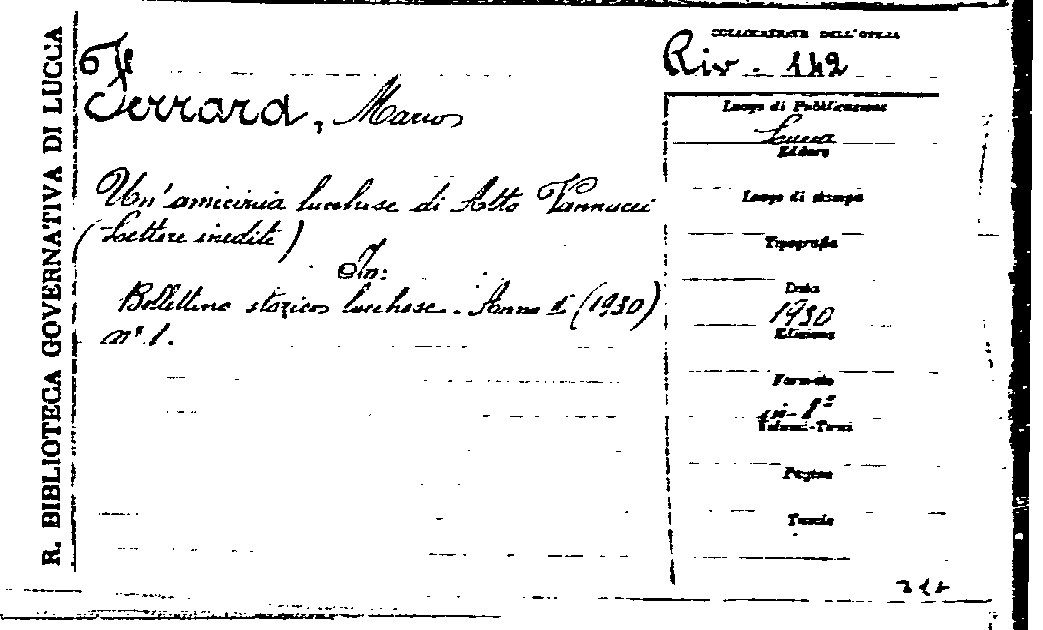 R. BIBLIOTECA GOVERNATIVA DI LUCCA
COLLOCAZIONE DELL'OPERA
Riv. 142
Ferrara, Mario
Un'amicizia lucchese di Atto Vannucci
(Lettere inedite)
In:
Bollettino storico lucchese. Anno (1930)
n° 1.
Luogo di Pubblicazione
Lucca
Editore
Luogo di stampa
Tipografia
Data
1930
Edizione
Formato
in-8°
Volumi-Tomi
Pagine
Tavole